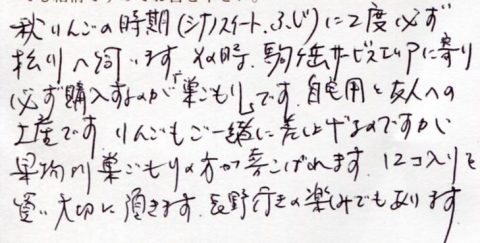 秋りんごの時期(シナノスイート、ふじ)に2度必ず
松川へ伺います。その時、駒ヶ岳サービスエリアに寄り
必ず購入するのが「巣ごもり」です。自宅用と友人への
土産です りんごもご一緒に差し上げるのですが
果物より巣ごもりの方が喜こばれます。12コ入りを
買い大切に頂きます。長野行きの楽しみでもあります